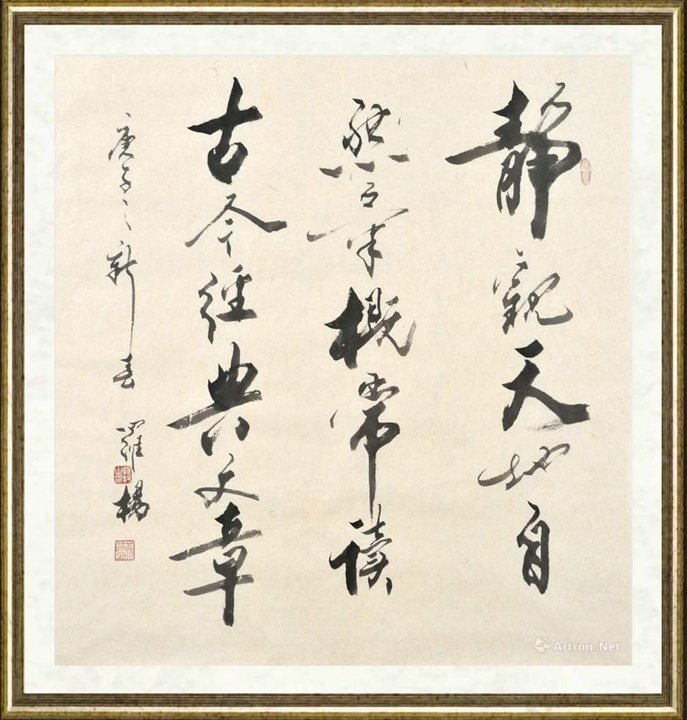 静觀天地自
然氣概常读
古今經典文章
庚子之新春 羅楊
Artron.Net